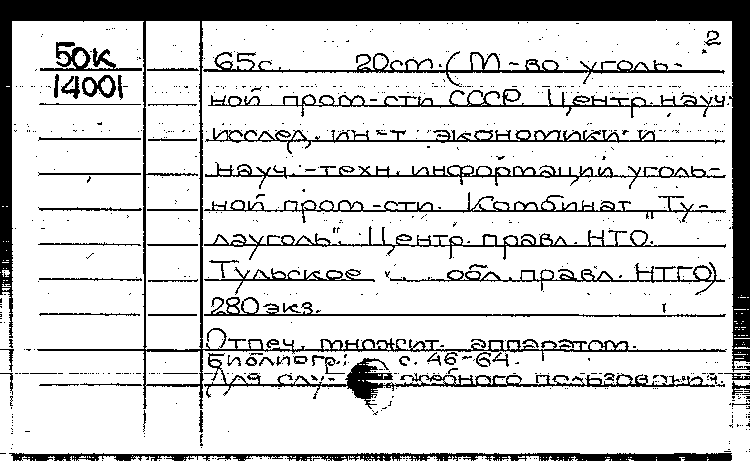 2
50К
14001
65с. 20cm. (М-во уголь-
ной пром-сти СССР. Центр. науч.
исслед. ин-т экономики и
науч.-техн. информации уголь-
ной пром-сти. Комбинат „Ту-
лауголь". Центр. правл. НТО.
Тульское обл. правл. НТГО)
280 экз.
Отпеч. множит. аппаратом.
Библиогр.: с. 46-64.
Для слу- жебного пользования.